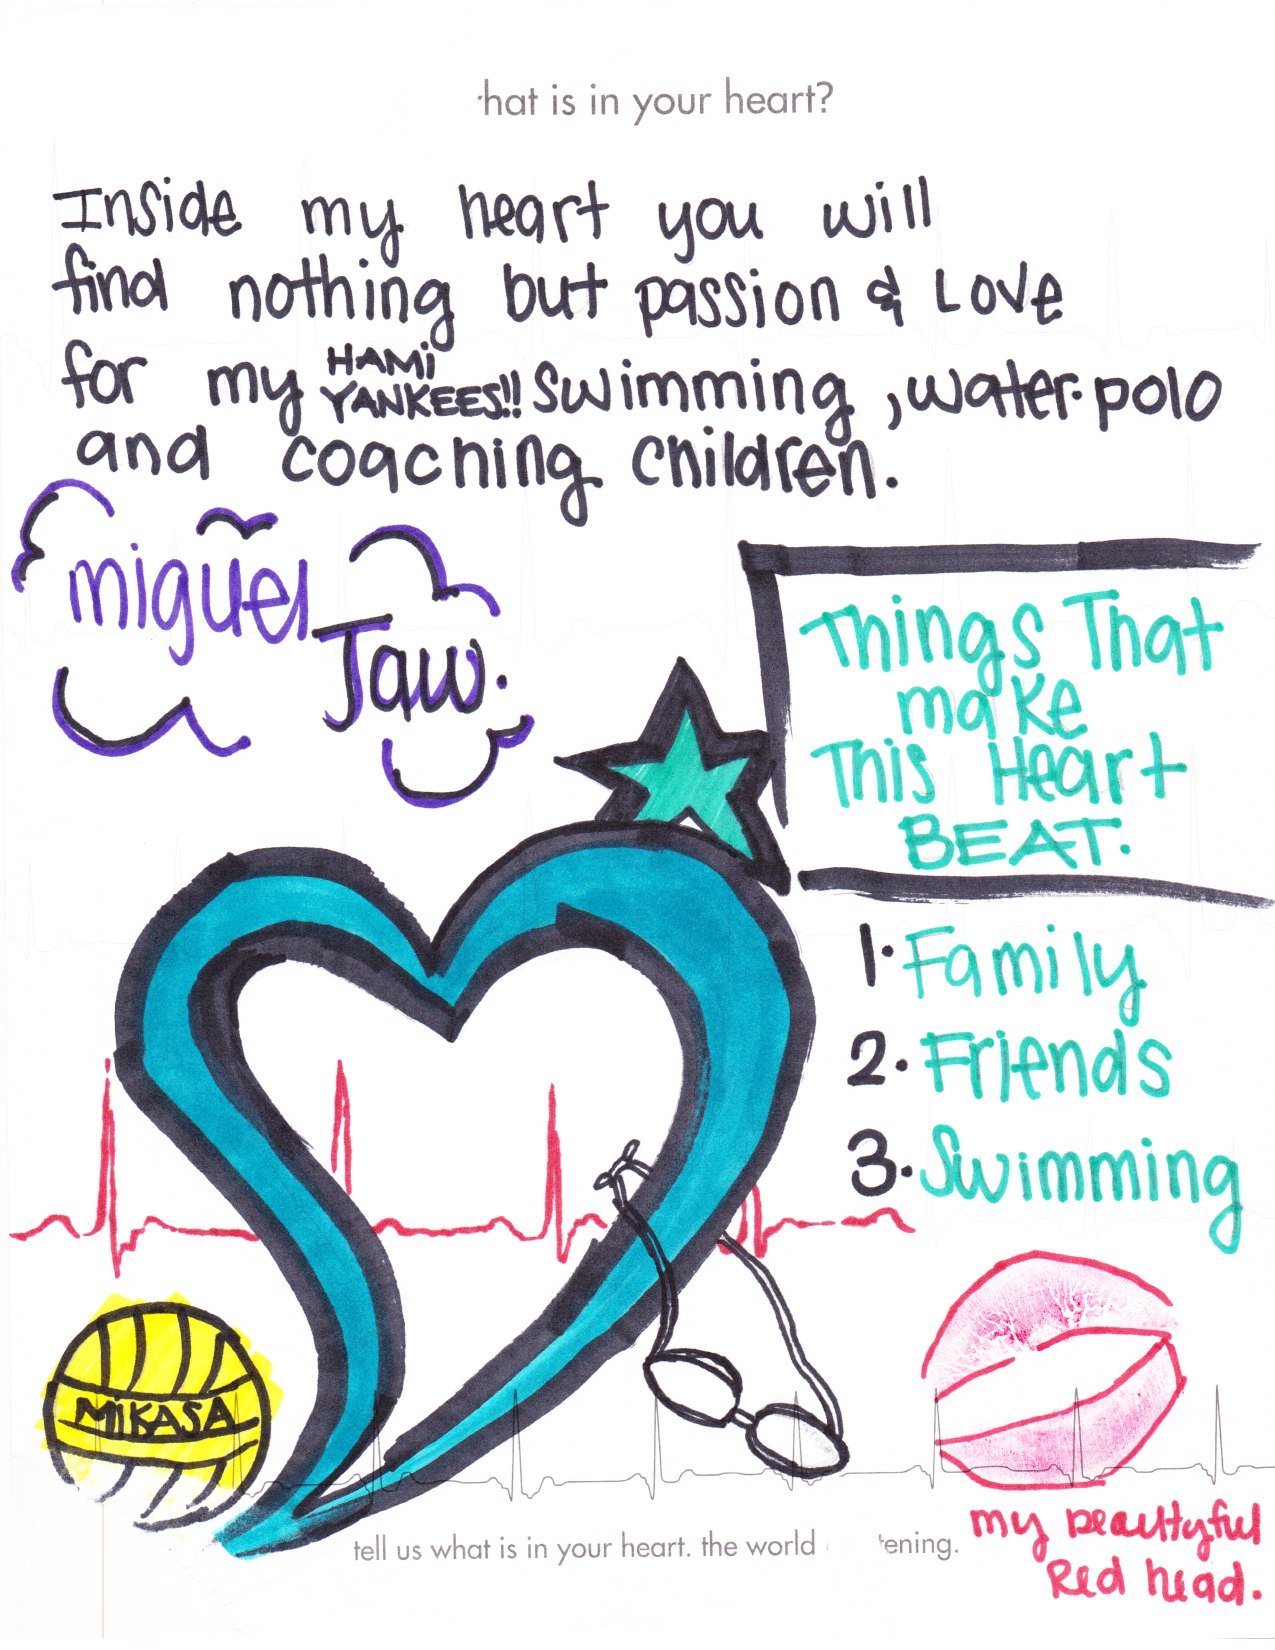 hat is in your heart?
Inside my heart you will
find nothing but passion & Love
for my HAMi YANKEES!! Swimming, water-polo
and coaching children.
miguel
Jaw.
Things That
make
This Heart
BEAT.
1. Family
2. Friends
3. Swimming
MIKASA
my beautyful
Red head.
tell us what is in your heart. the world tening.